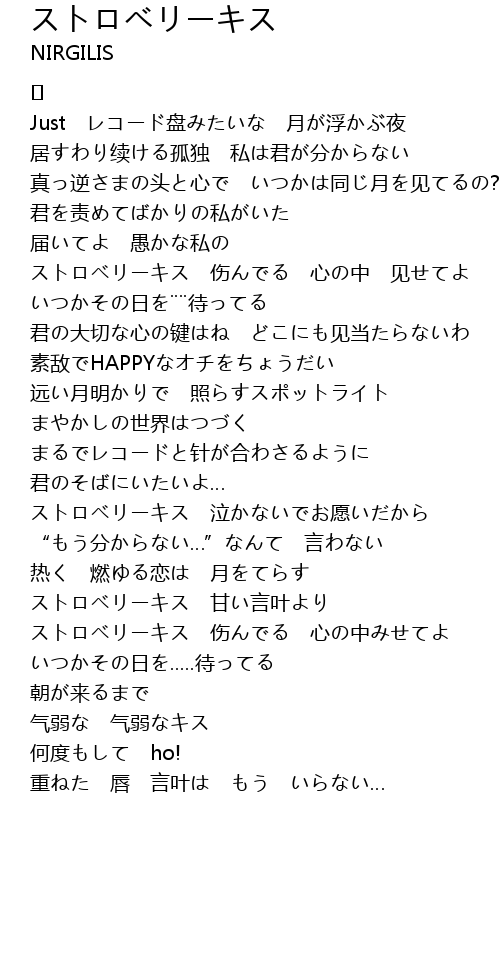 ストロベリーキス
NIRGILIS
[]
Just　レコード盘みたいな　月が浮かぶ夜
居すわり续ける孤独　私は君が分からない
真っ逆さまの头と心で　いつかは同じ月を见てるの?
君を责めてばかりの私がいた
届いてよ　愚かな私の
ストロベリーキス　伤んでる　心の中　见せてよ
いつかその日を¨¨待ってる
君の大切な心の键はね　どこにも见当たらないわ
素敌でHAPPYなオチをちょうだい
远い月明かりで　照らすスポットライト
まやかしの世界はつづく
まるでレコードと针が合わさるように
君のそばにいたいよ...
ストロベリーキス　泣かないでお愿いだから
“もう分からない...”なんて　言わない
热く　燃ゆる恋は　月をてらす
ストロベリーキス　甘い言叶より
ストロベリーキス　伤んでる　心の中みせてよ
いつかその日を.....待ってる
朝が来るまで
气弱な　气弱なキス
何度もして　ho!
重ねた　唇　言叶は　もう　いらない...